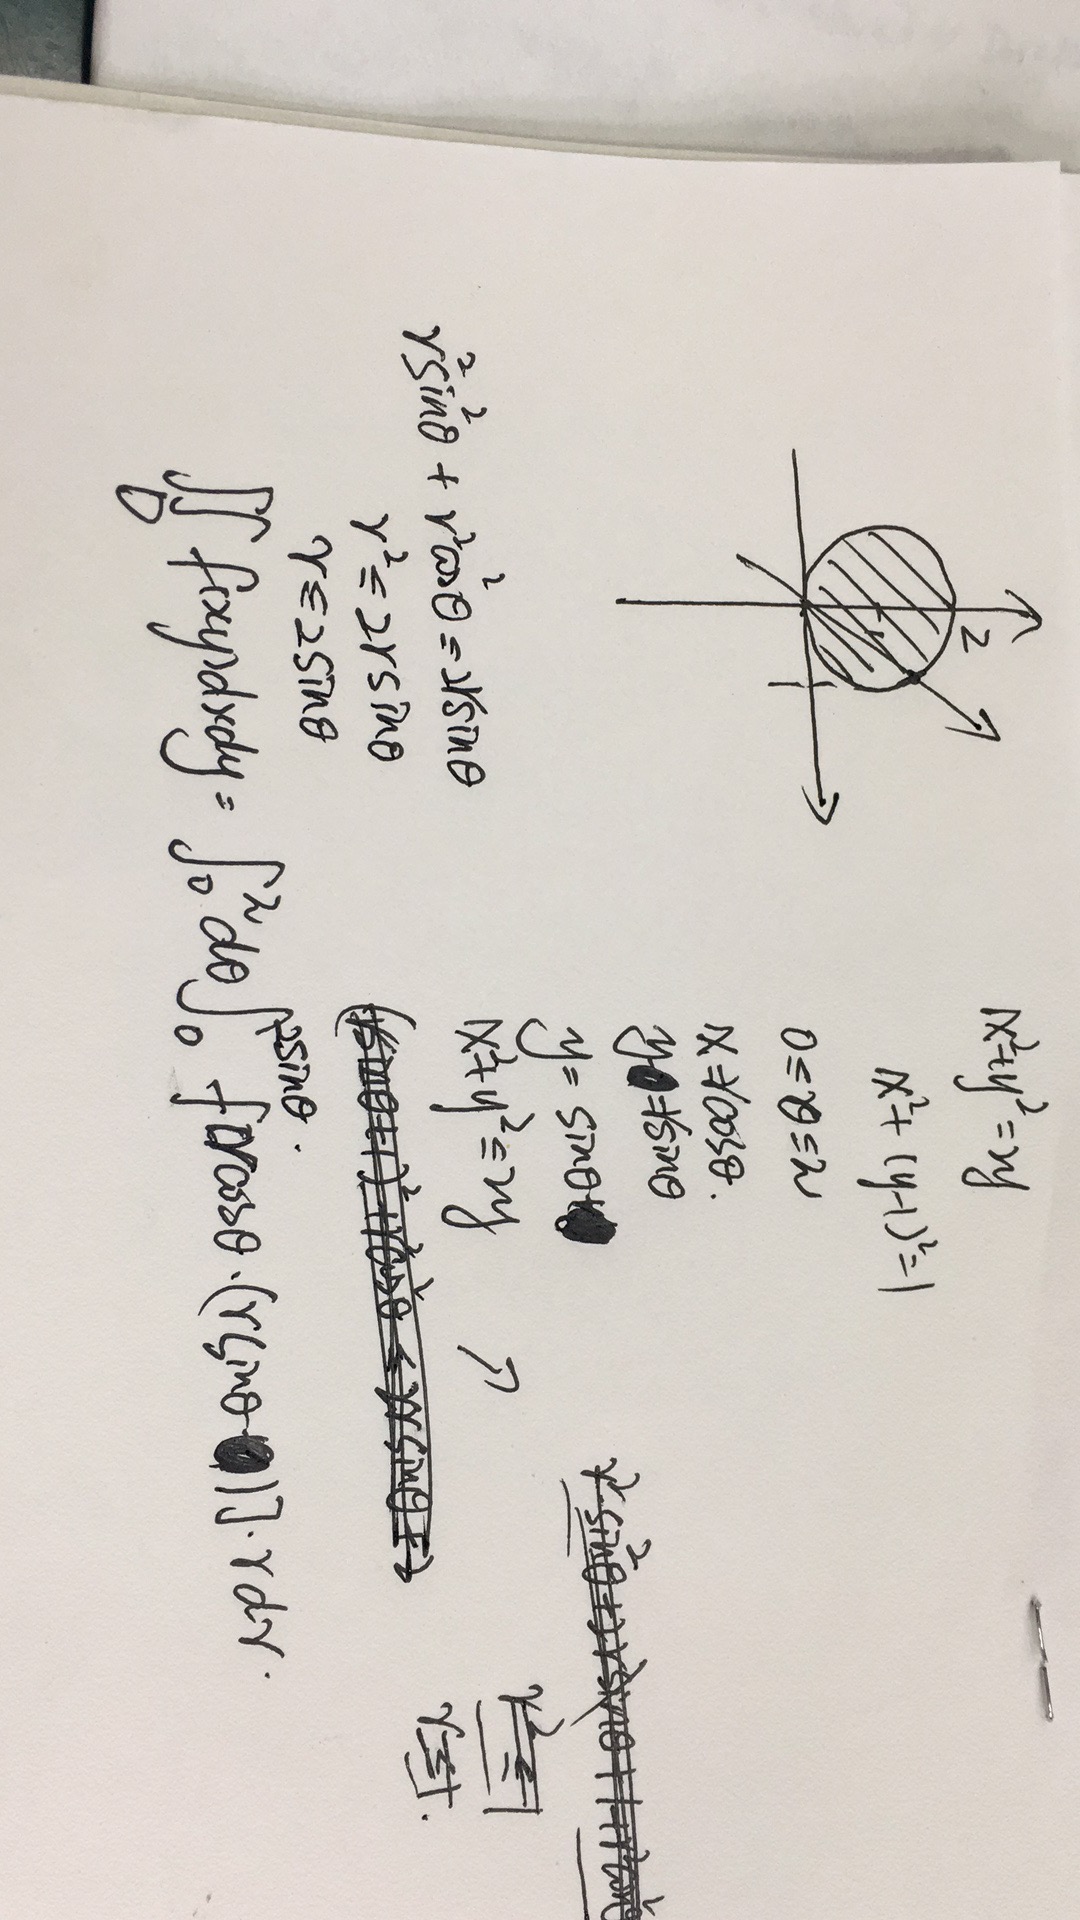 2
x²+y²=2y
x²+(y-1)²=1
0≤θ≤π
x=rcosθ.
y=rsinθ
y=sinθ
x²+y²≤2y
r²sin²θ + r²cos²θ = 2rsinθ
r²=2rsinθ
r≤2sinθ
r²≤1
r≤1.
∬ f(x,y)dxdy = ∫₀^π dθ ∫₀^2sinθ. f[rcosθ.(rsinθ)]·rdr.
D